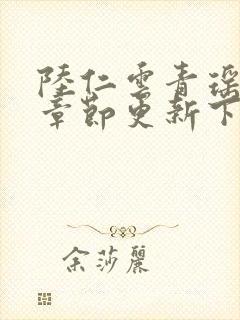 陸仁雲青瑶
章節更新下
余莎麗